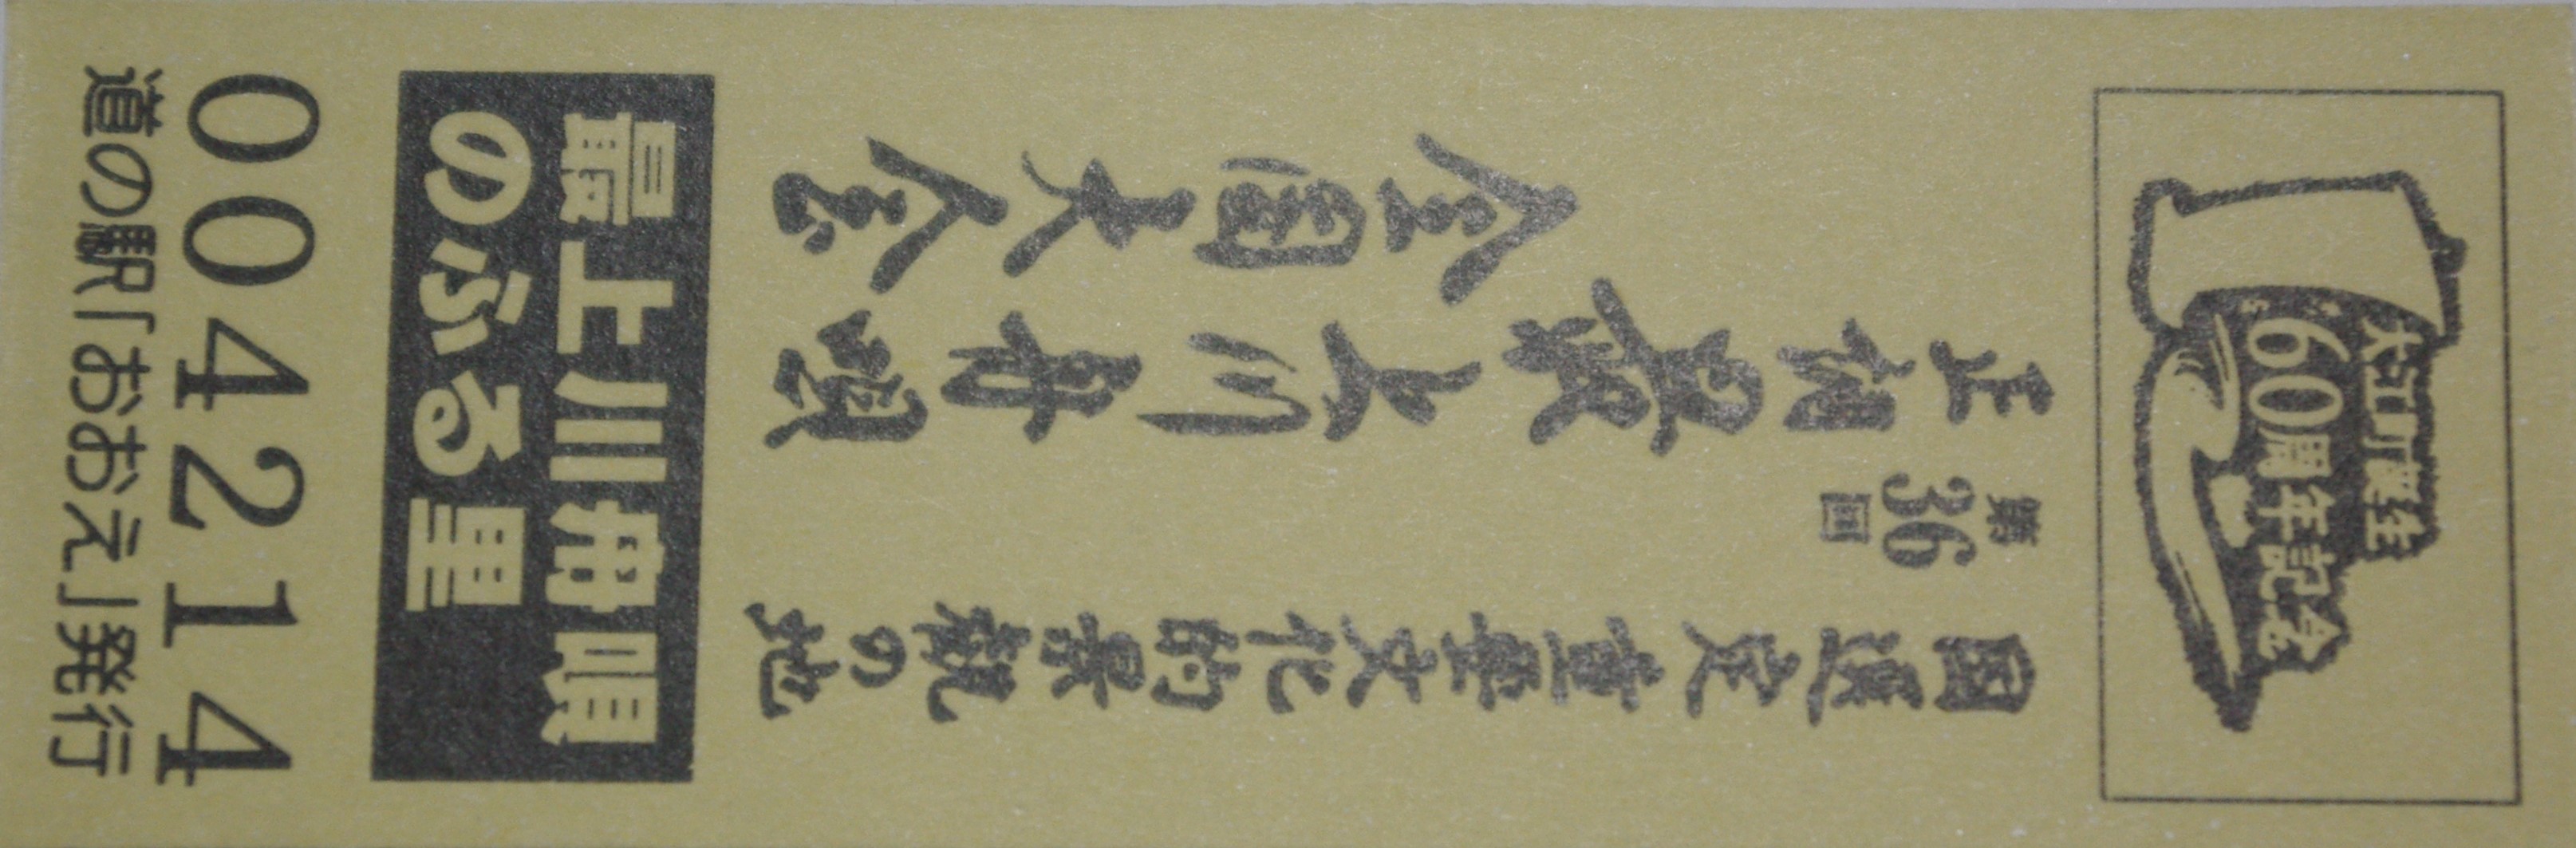 大江町誕生
60周年記念
国選定重要文化的景観の地
第36回
正調最上川舟唄
全国大会
最上川舟唄
のふる里
004214
道の駅「おおえ」発行